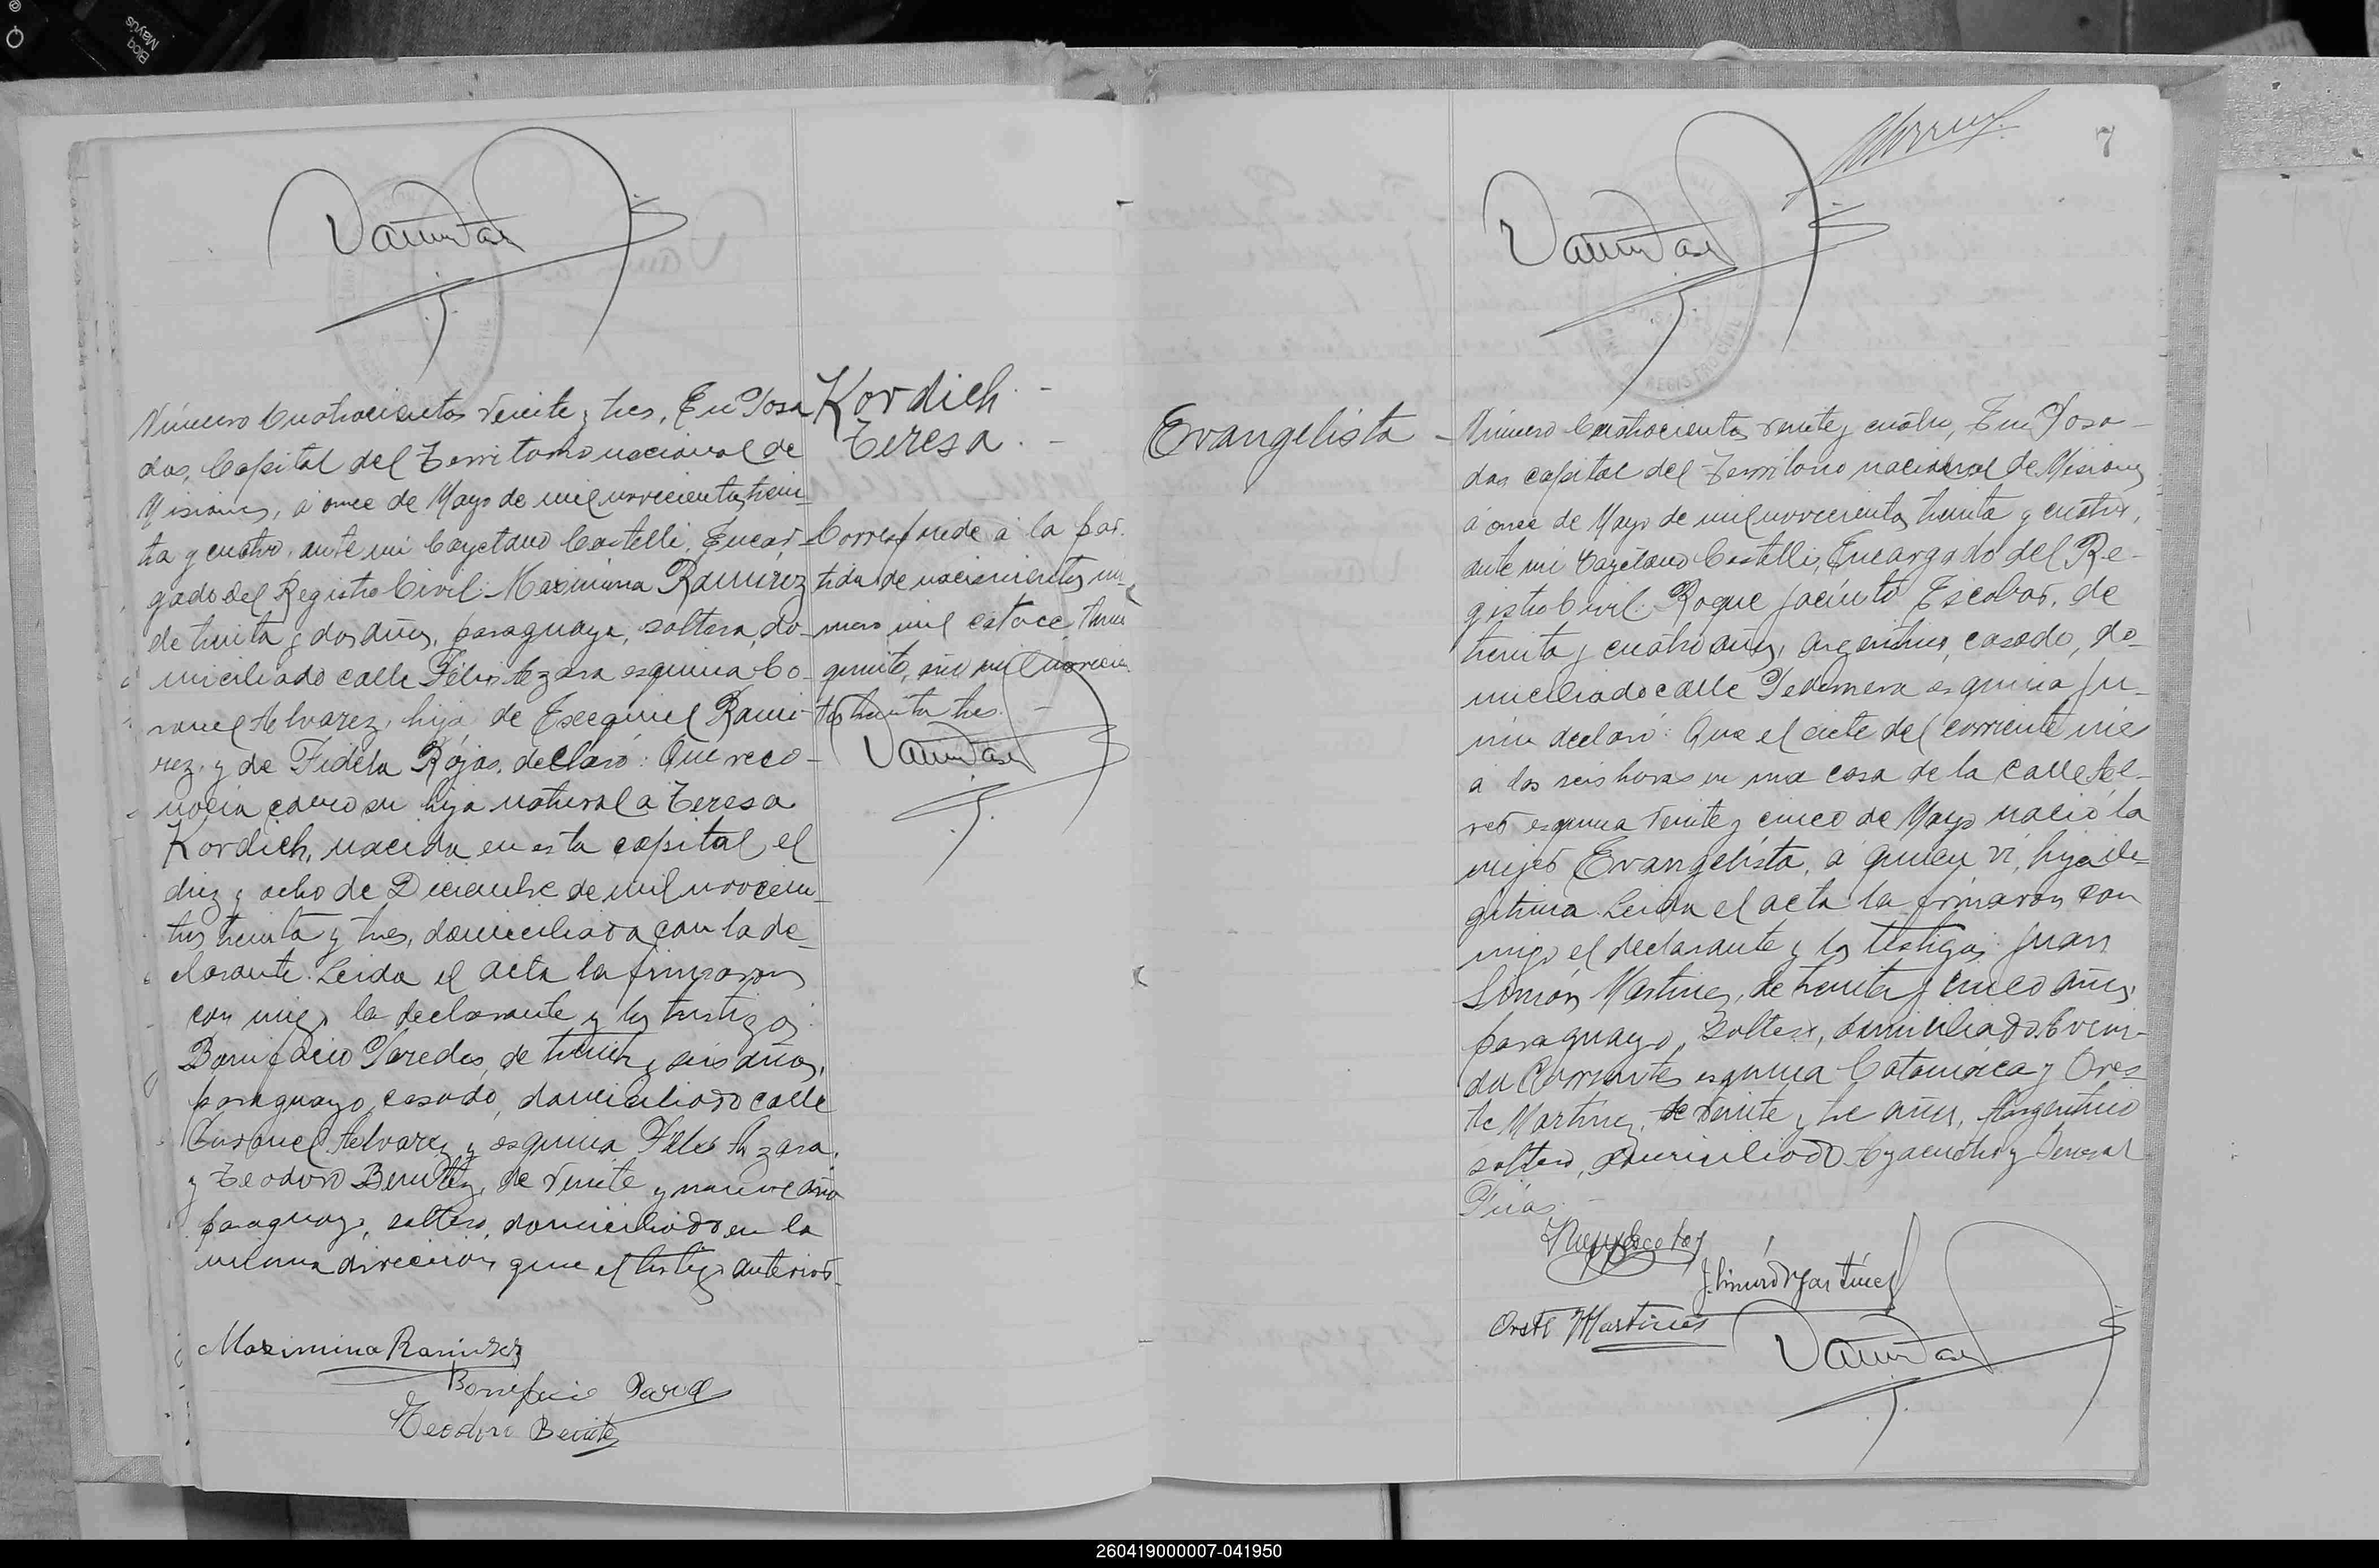 Bloq
Mayús
7
Kordich
Teresa
Número Cuatrocientos veinte y tres, En Posa
das, Capital del Territorio nacional de
Misiones, á once de Mayo de mil novecientos trein-
ta y cuatro, ante mi Cayetano Castelli, Encar-
gado del Registro Civil: Maximina Ramirez
de treinta y dos años, paraguaya, soltera, do-
miciliado calle Félix Azara esquina Co-
ronel Alvarez, hija de Esequiel Rami-
rez, y de Fidela Rojas, declaró: Que reco-
nocia como su hija natural a Teresa
Kordich, nacida en esta capital el
diez y ocho de Diciembre de mil novecien-
tos treinta y tres, domiciliada con la de-
clarante. Leida el acta la firmaron
con migo la declarante y los testigos:
Bonifacio Paredes, de treinta y seis años,
paraguayo, casado, domiciliado calle
Coronel Alvarez y esquina Félix Azara,
y Teodoro Benitez, de veinte y nueve año
paraguayo, soltero, domiciliado en la
misma direccion que el testigo anterior-
Corresponde á la par-
tida de nacimientos nu-
mero mil catorce, tomo
quinto, año mil novecien
tos treinta tres.
Maximina Ramirez
Bonifacio Pared
Teodoro Benitez
Evangelista
Número Cuatrocientos veinte y cuatro, En Posa-
das capital del Territorio nacional de Misiones
á once de Mayo de mil novecientos treinta y cuatro,
ante mi Cayetano Castelli, Encargado del Re-
gistro Civil: Roque Jacinto Escobar, de
treinta y cuatro años, argentino, casado, do-
miciliado calle Pedernera esquina Ju-
nin declaró: Que el siete del corriente mes
á las seis horas en una casa de la calle Al-
esquina Veinte y cinco de Mayo nació la
mujer Evangelista, á quien ví, hija le-
gitima. Leida el acta la firmaron con
migo el declarante y los testigos: Juan
Simón Martinez, de treinta y cinco años,
paraguayo, soltero, domiciliado Aveni-
da Corrientes esquina Catamarca y Ores-
te Martinez, de veinte y tre años, Argentino
soltero, domiciliado Ayacucho y General
J. Simón Martínez
Oreste Martines
260419000007-041950